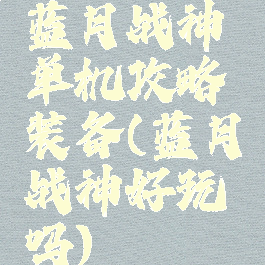 蓝月战神
单机攻略
装备(蓝月
战神好玩
吗)